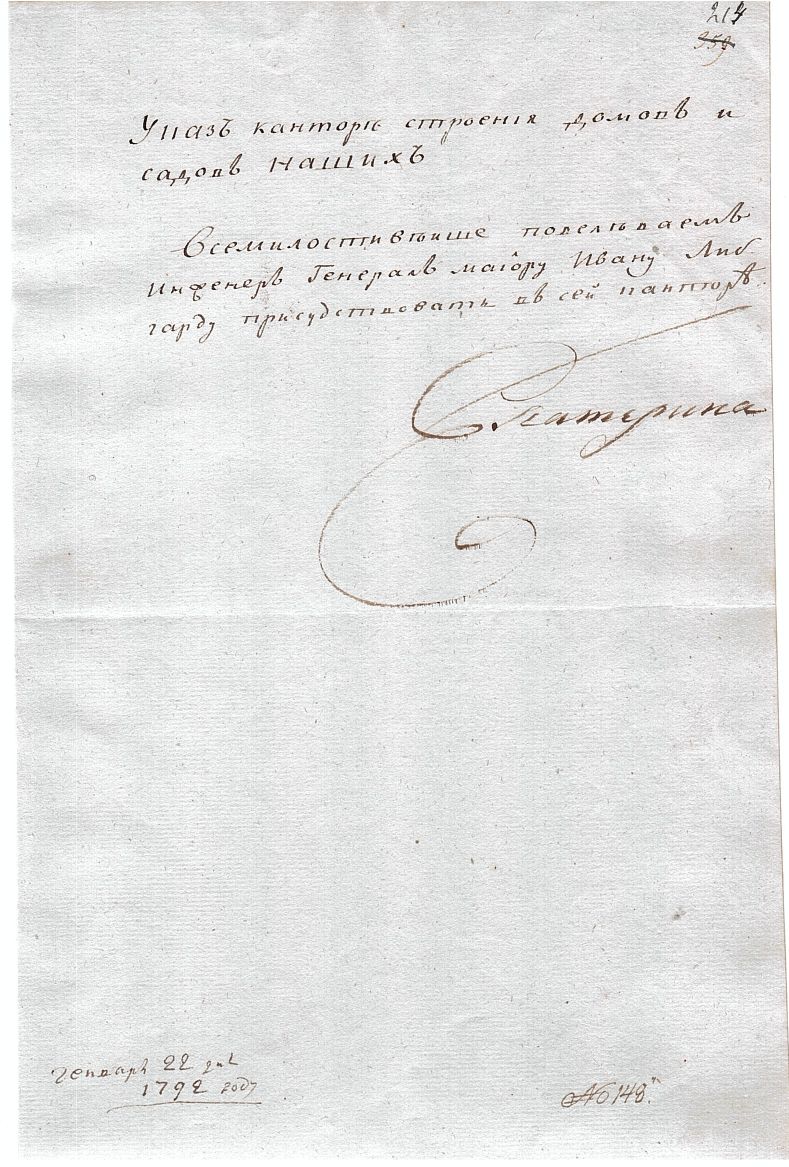 214
359
Указъ канторѣ строенія домовъ и
садовъ нашихъ
Всемилостивѣише повелѣваемъ
Инженеръ Генералъ маіору Ивану Либ
гарду присудствовать въ сей канторѣ.
Екатерина
Генваря 22 дня
1792 году
No 148.